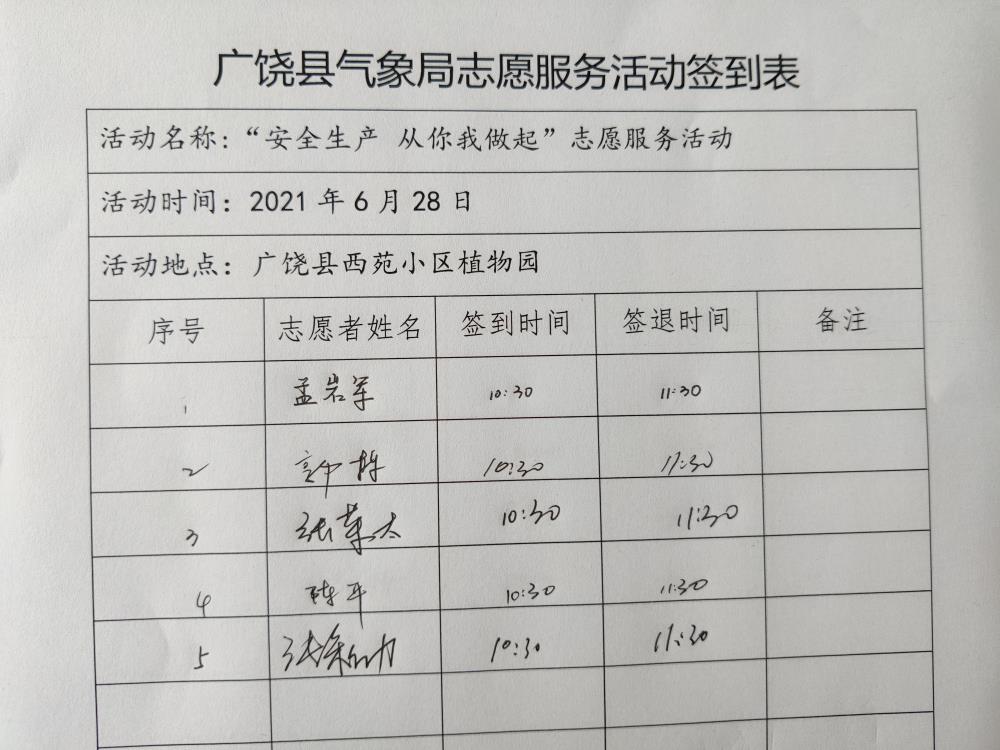 广饶县气象局志愿服务活动签到表
活动名称:“安全生产 从你我做起”志愿服务活动
活动时间:2021 年 6 月 28 日
活动地点: 广饶县西苑小区植物园
序号 志愿者姓名 签到时间 签退时间 备注
1 孟岩军 10:30 11:30
2 10:30 11:30
3 张 10:30 11:30
4 陈平 10:30 11:30
5 张 10:30 11:30